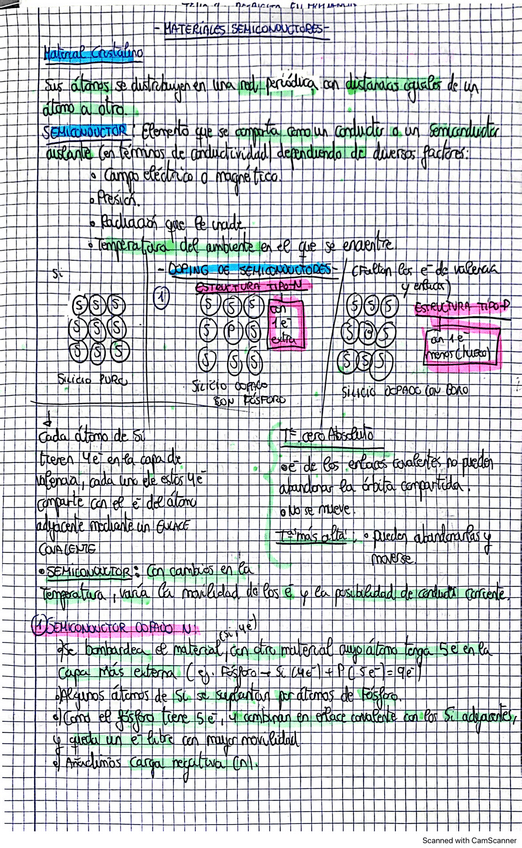 - MATERIALES SEMICONDUCTORES -
Material Cristalino
Sus átomos se distribuyen en una red periódica con distancias iguales de un
átomo a otro.
SEMICONDUCTOR: Elemento que se comporta como un conductor o un semiconductor
aislante (en términos de conductividad) dependiendo de diversos factores:
• Campo eléctrico o magnético.
• Presión.
• Radiación que le
• Temperatura del ambiente en el que se encuentre.
- DOPING DE SEMICONDUCTORES -
Si
S S S
S S S
S S S
SILICIO PURO
ESTRUCTURA TIPO-N
1
S S S
S P S
S S S
con
1 e⁻
extra
SILICIO DOPADO
CON FÓSFORO
(Faltan los e⁻ de valencia
y enlaces)
ESTRUCTURA TIPO-P
S S S
S B S
S S S
con 1 e⁻
menos (hueco)
SILICIO DOPADO CON BORO
Cada átomo de Si
tienen 4e⁻ en la capa de
valencia, cada uno de estos 4e⁻
comparte con el e⁻ del átomo
adyacente mediante un ENLACE
COVALENTE
Tª cero Absoluto
• e⁻ de los enlaces covalentes no pueden
abandonar la órbita compartida.
• No se mueve.
Tª más alta: • Pueden abandonarlas y
moverse.
• SEMICONDUCTOR: Con cambios en la
Temperatura, varía la movilidad de los e⁻ y la posibilidad de conducir corriente.
1 SEMICONDUCTOR DOPADO N:
(Si, 4e⁻)
•) Se bombardea el material, con otro material cuyo átomo tenga 5e⁻ en la
capa más externa (ej. Fósforo → Si (4e⁻) + P (5e⁻) = 9e⁻)
•) Algunos átomos de Si se suplantan por átomos de Fósforo.
•) Como el fósforo tiene 5e⁻, 4 combinan en enlace covalente con los Si adyacentes,
y queda un e⁻ libre con mayor movilidad
•) Añadimos carga negativa (n).
Scanned with CamScanner